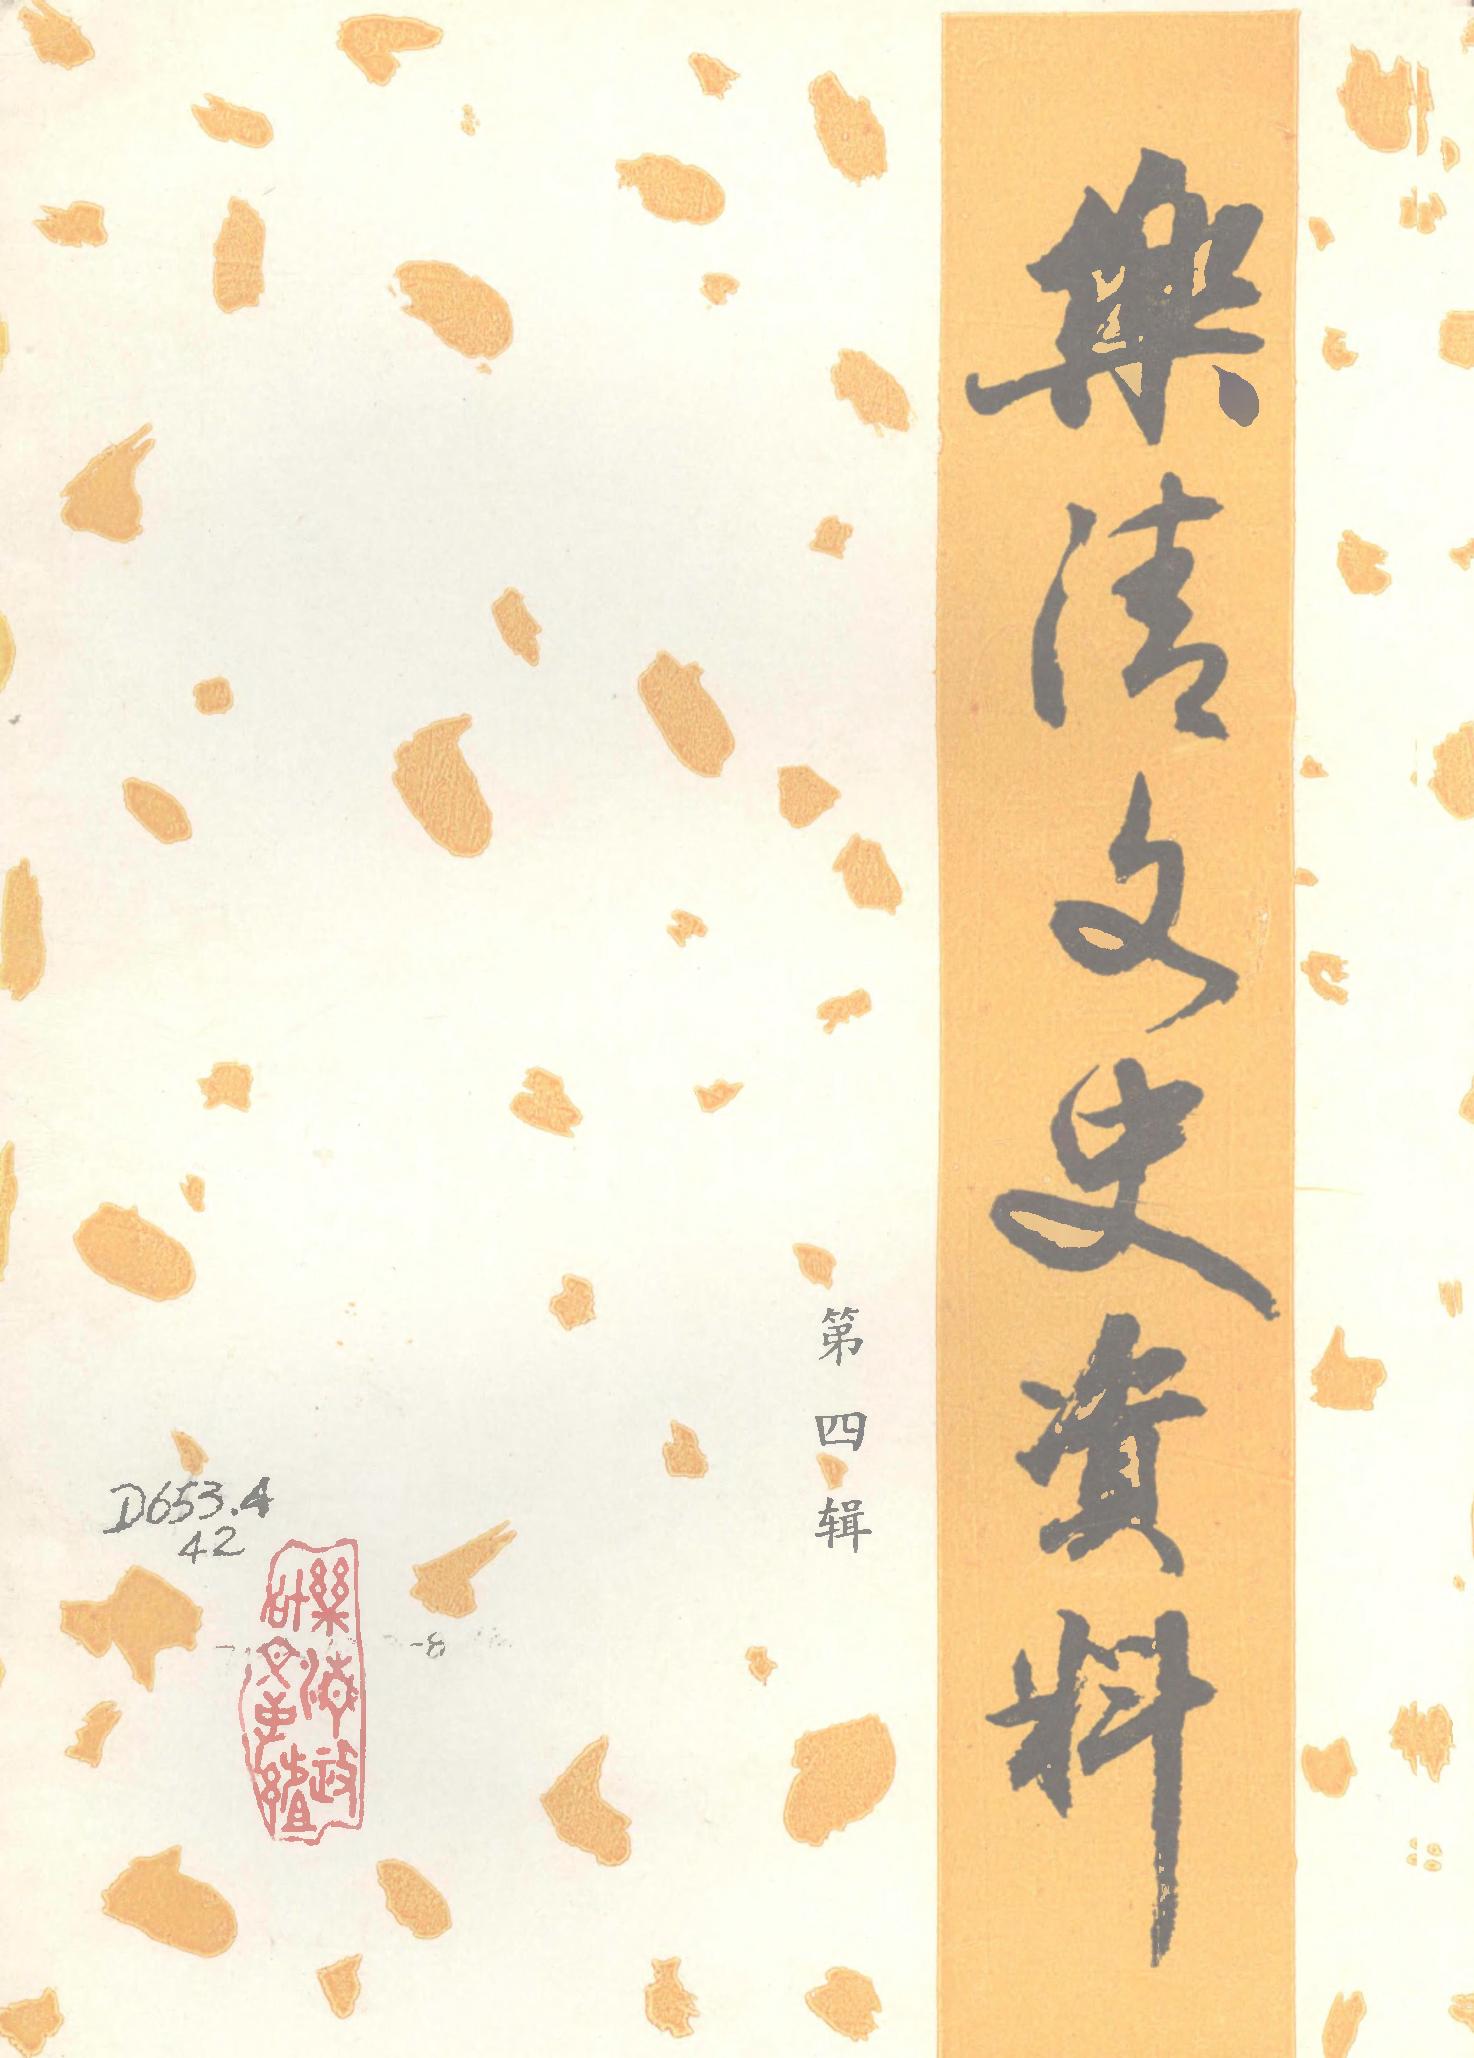 樂清文史資料
第四辑
D653.4
42
樂清政
叶文史組